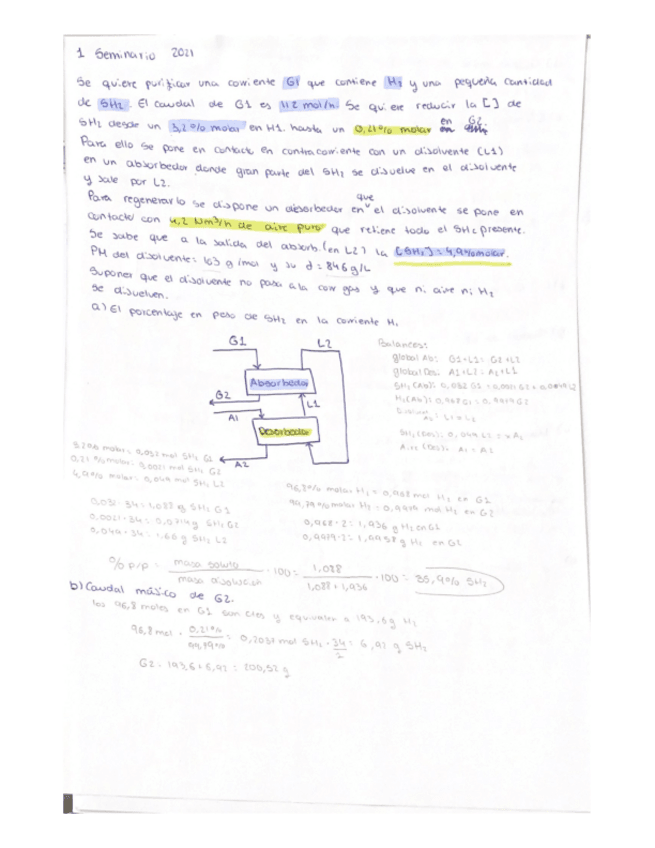 1 Seminario 2021
Se quiere purificar una corriente G1 que contiene H2 y una pequeña cantidad
de SH2. El caudal de G1 es 112 mol/h. Se quiere reducir la [] de
SH2 desde un 3,2% molar en H1 hasta un 0,21% molar en G2.
Para ello se pone en contacto en contracorriente con un disolvente (L1)
en un absorbedor donde gran parte del SH2 se disuelve en el disolvente
y sale por L2.
Para regenerarlo se dispone un desorbedor en que el disolvente se pone en
contacto con 4,2 Nm³/h de aire puro que retiene todo el SH2 presente.
Se sabe que a la salida del absorb. (en L2) la [SH2] = 4,9% molar.
PM del disolvente = 163 g/mol y su d = 846 g/L
Suponer que el disolvente no pasa a la corr gas y que ni aire ni H2
se disuelven.
a) El porcentaje en peso de SH2 en la corriente H1
G1
L2
Absorbedor
G2
L1
A1
Desorbedor
A2
Balances:
global Ab: G1+L1 = G2+L2
global Des: A1+L2 = A2+L1
SH2 (Ab): 0,032 G1 = 0,0021 G2 + 0,049 L2
H2 (Ab): 0,968 G1 = 0,9979 G2
Aire (Des): A1 = A2
3,2% molar = 0,032 mol SH2 G1
0,21% molar = 0,0021 mol SH2 G2
4,9% molar = 0,049 mol SH2 L2
96,8% molar H2 = 0,968 mol H2 en G1
99,79% molar H2 = 0,9979 mol H2 en G2
0,032 · 34 = 1,088 g SH2 G1
0,0021 · 34 = 0,0714 g SH2 G2
0,049 · 34 = 1,66 g SH2 L2
0,968 · 2 = 1,936 g H2 en G1
0,9979 · 2 = 1,9958 g H2 en G2
% p/p = masa soluto / masa disolución · 100 = 1,088 / 1,088 + 1,936 · 100 = 35,9% SH2
b) Caudal másico de G2.
los 96,8 moles en G1 son ctes y equivalen a 193,6 g H2
96,8 mol · 0,21% / 99,79% = 0,2037 mol SH2 · 34 = 6,92 g SH2
G2 = 193,6 + 6,92 = 200,52 g